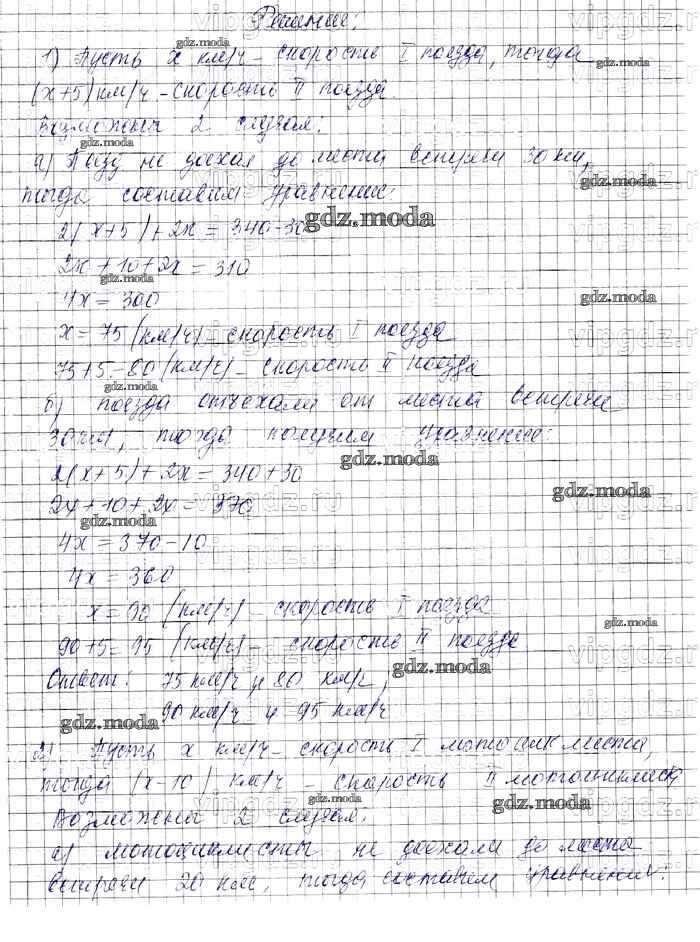 Решение:
1) Пусть x км/ч – скорость I поезда, тогда
(x+5) км/ч – скорость II поезда.
Возможны 2 случая:
а) Поезд не доехал до места встречи 30 км,
тогда составим уравнение:
2(x+5)+2x = 340-30
2x+10+2x = 310
4x = 300
x = 75 (км/ч) – скорость I поезда
75+5=80 (км/ч) – скорость II поезда
б) поезда отъехали от места встречи
30 км, тогда получим уравнение:
2(x+5)+2x = 340+30
2x+10+2x = 370
4x = 370-10
4x = 360
x = 90 (км/ч) – скорость I поезда
90+5=95 (км/ч) – скорость II поезда
Ответ: 75 км/ч и 80 км/ч,
90 км/ч и 95 км/ч
2) Пусть x км/ч – скорость I мотоциклиста,
тогда (x-10) км/ч – скорость II мотоциклиста
Возможны 2 случая:
а) мотоциклисты не доехали до места
встречи 20 км, тогда составим уравнение:
gdz.moda
vipgdz.ru